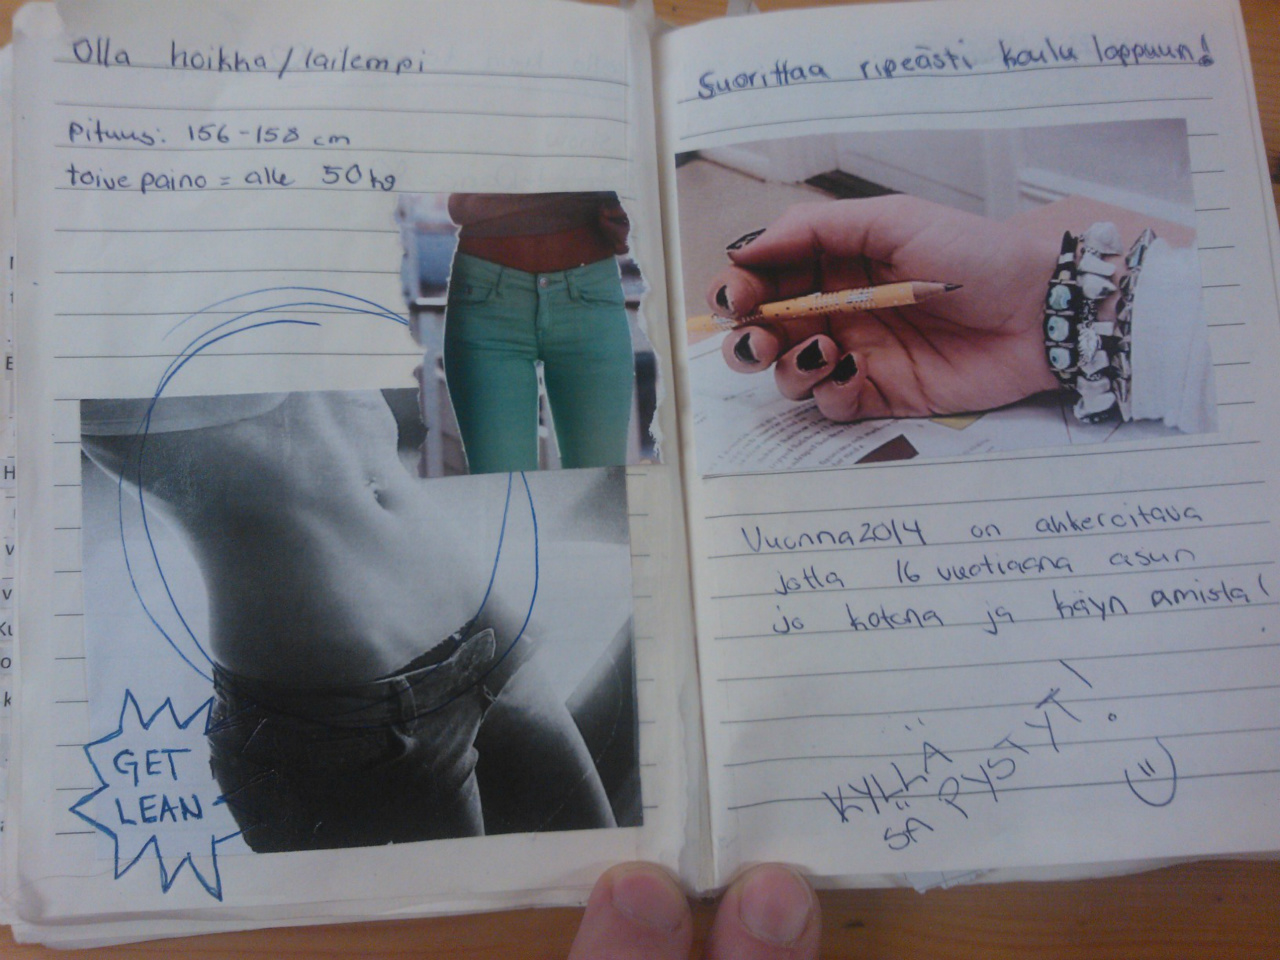 Olla hoikka/laihempi
pituus: 156-158 cm
toive paino = alle 50 kg
GET
LEAN
Suorittaa ripeästi koulu loppuun!
Vuonna 2014 on ahkeroitava
jotta 16 vuotiaana asun
jo kotona ja käyn amista!
KYLLÄ
SÄ PYSTYT!